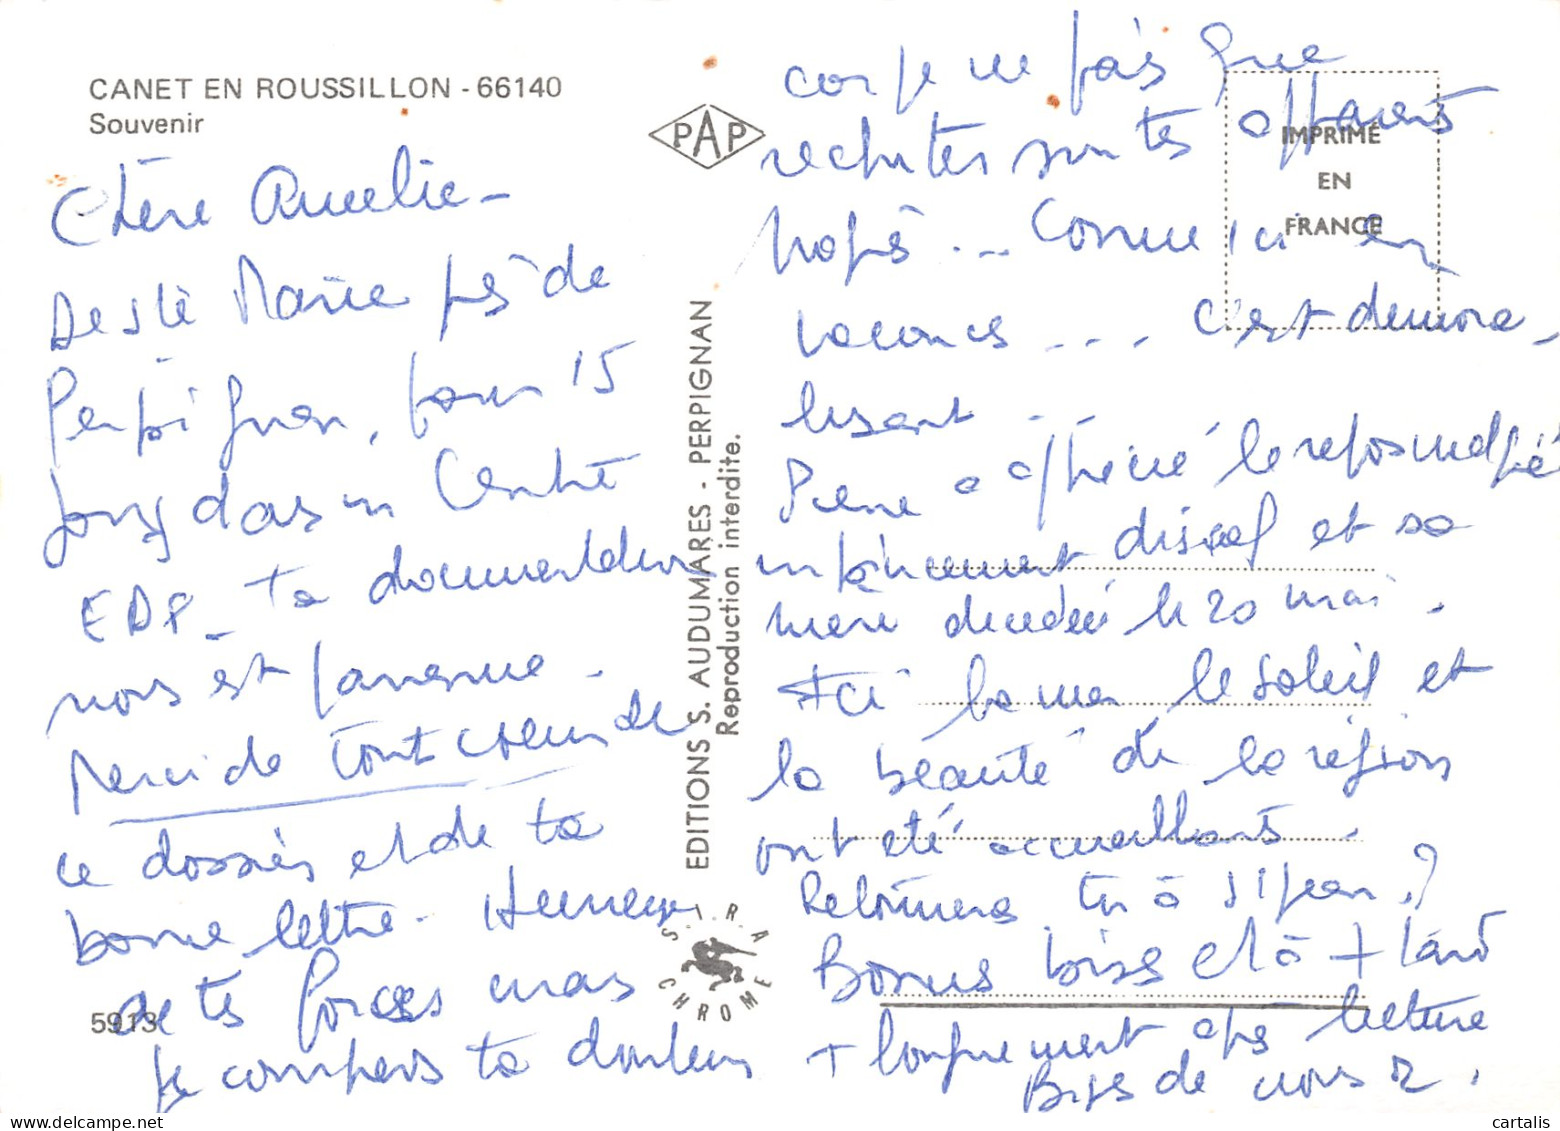 CANET EN ROUSSILLON - 66140
Souvenir
Chère Aurelie -
De Ste Marie près de
Perpignan, pour 15
jours dans un Centre
EDF - ta documentation
nous est parvenue -
Merci de tout coeur de
ce dossier et de ta
bonne lettre - Heureuse
de tes forces mais
je comprends ta douleur
5913
PAP
EDITIONS S. AUDUMARES - PERPIGNAN
Reproduction interdite.
S I R A
CHROME
IMPRIMÉ
EN
FRANCE
car je ne fais que
rechutes sur tes
... Comme ici en
vacances ... c'est démora-
lisant -
Pierre a le repos malgré
un et sa
mère décédée le 20 mai -
Ici la mer le soleil et
la beauté de la région
ont été accueillants -
Retournes tu à St Jean ?
Bonnes bises et à + tard
+ longuement après lecture
Bises de nous 2.
cartalis
www.delcampe.net